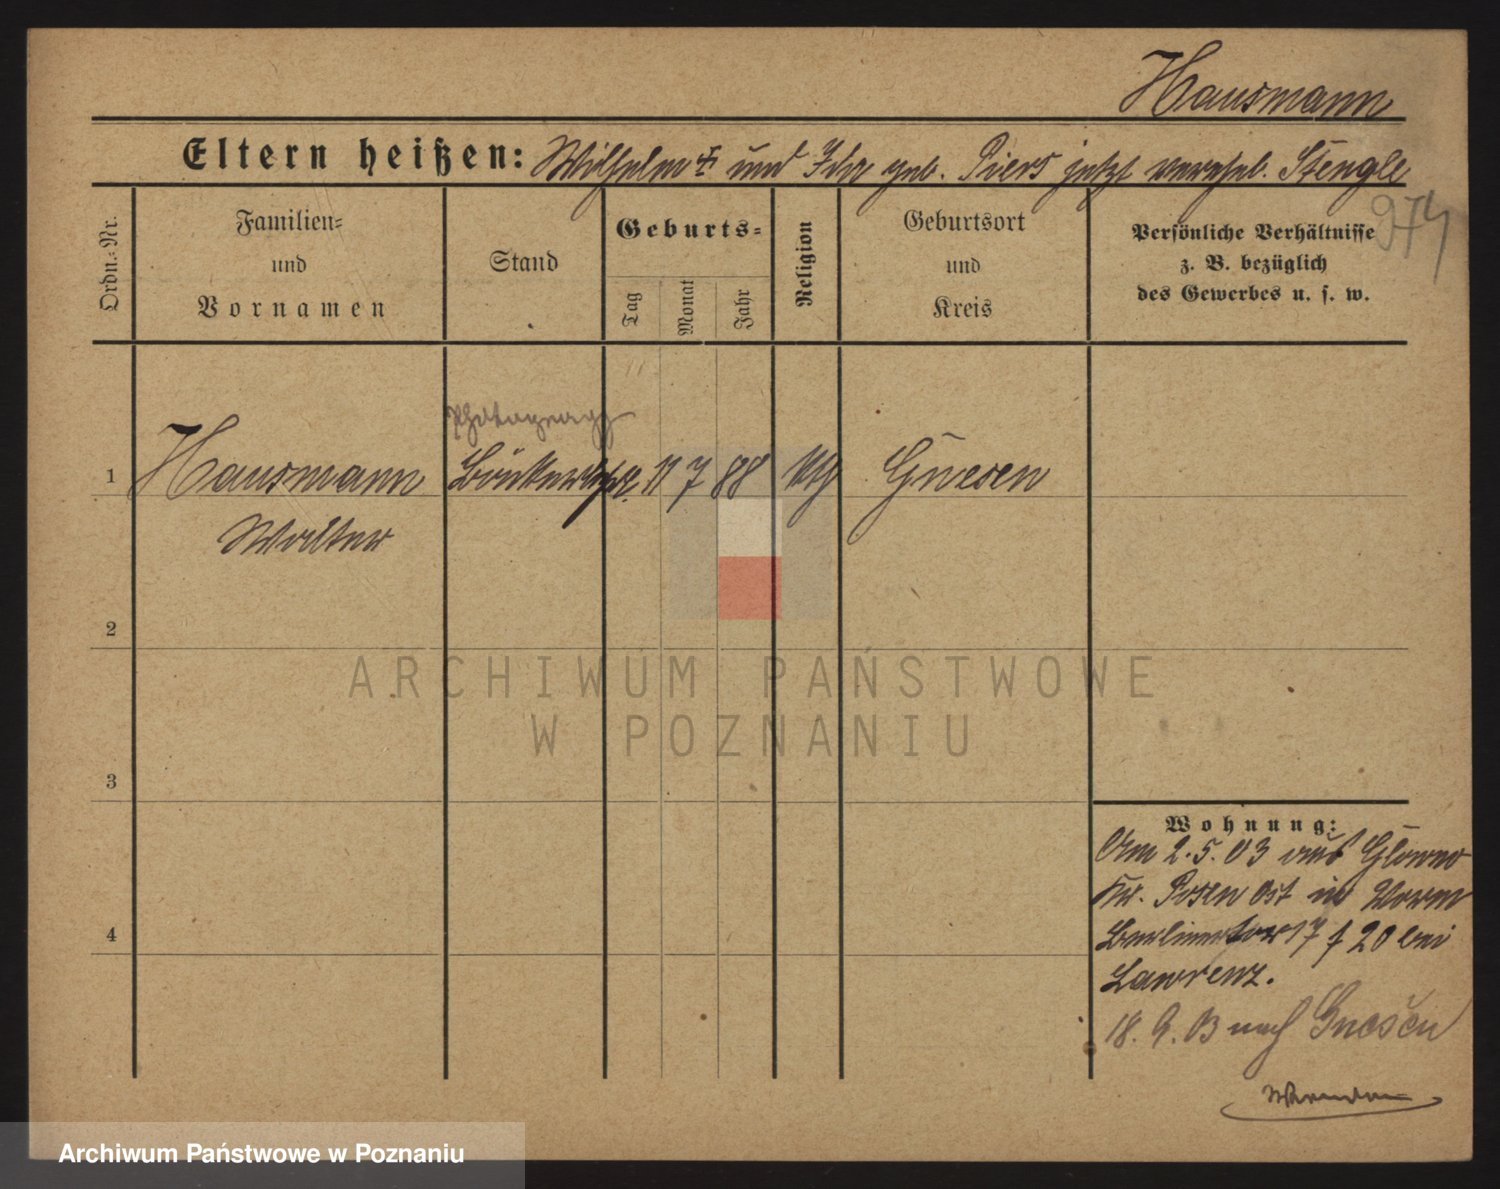 Hausmann
Eltern heißen: Wilhelm † und Ida geb. Piers jetzt verehel. Stengle
974
Ordn.-Nr.
Familien- und Vornamen
Stand
Geburts-
Tag
Monat
Jahr
Religion
Geburtsort und Kreis
Persönliche Verhältnisse z. B. bezüglich des Gewerbes u. s. w.
Photograph
1 Hausmann 11 7 88 Gnesen
Walter
2
3
4
Wohnung:
Am 2.5.03 aus Glowno
Kr. Posen Ost in
Berlinertor 17 f 20 bei
Lawrenz.
18. 9. 03 nach Gnesen
ARCHIWUM PAŃSTWOWE
W POZNANIU
Archiwum Państwowe w Poznaniu